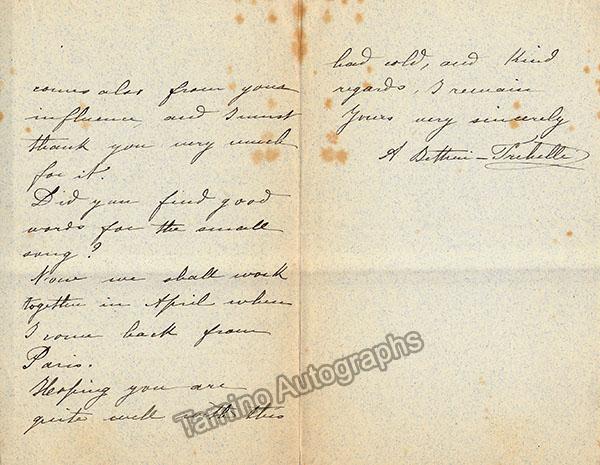 comes also from your
influence, and I must
thank you very much
for it.
Did you find good
words for the small
song?
Now we shall work
together in April when
I come back from
Paris.
Hoping you are
quite well with this
bad cold, and kind
regards, I remain
Yours very sincerely
A Bettini-Trebelli
Tamino Autographs